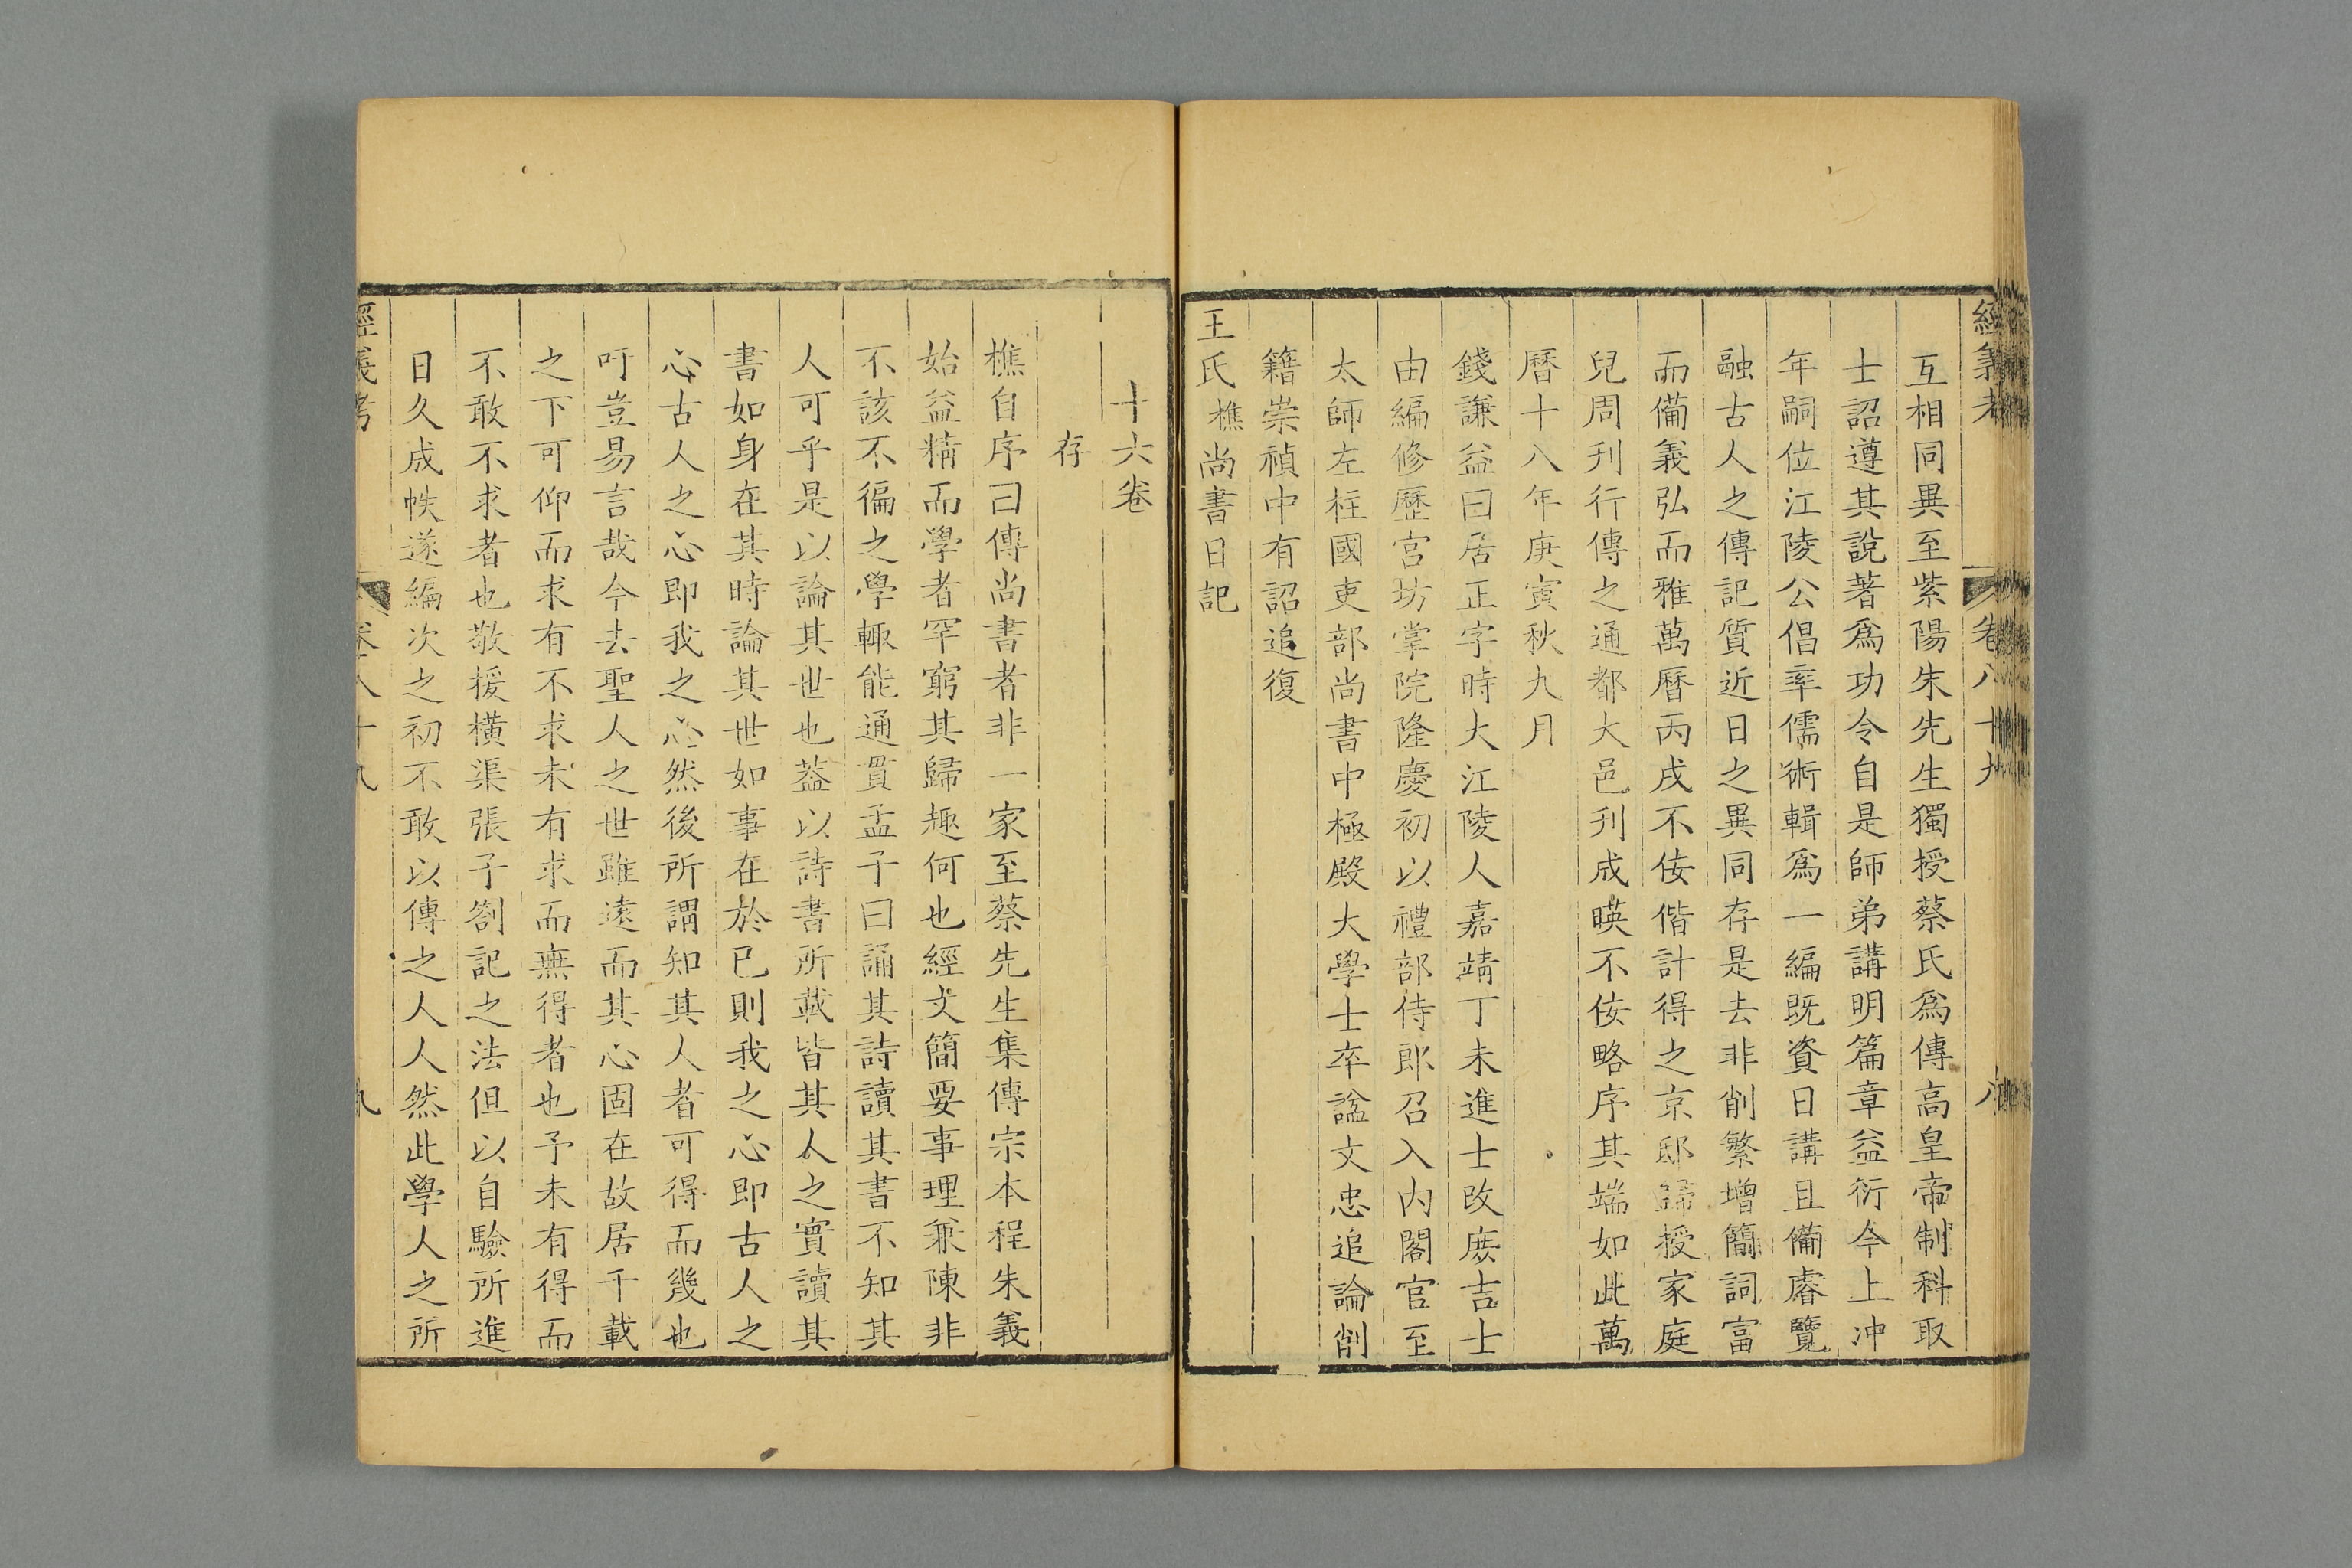 經義考 卷八十九 八
互相同異至紫陽朱先生獨授蔡氏為傳高皇帝制科取
士詔遵其說著為功令自是師弟講明篇章益衍今上冲
年嗣位江陵公倡率儒術輯為一編既資日講且備睿覽
融古人之傳記質近日之異同存是去非削繁增簡詞富
而備義弘而雅萬曆丙戌不佞偕計得之京邸歸授家庭
兒周刋行傳之通都大邑刋成暎不佞略序其端如此萬
曆十八年庚寅秋九月
錢謙益曰居正字時大江陵人嘉靖丁未進士改庻吉士
由編修歷宫坊掌院隆慶初以禮部侍郎召入内閣官至
太師左柱國吏部尚書中極殿大學士卒諡文忠追論削
籍崇禎中有詔追復
王氏樵尚書日記
十六卷
存
樵自序曰傳尚書者非一家至蔡先生集傳宗本程朱義
始益精而學者罕窮其歸趣何也經文簡要事理兼陳非
不該不徧之學輒能通貫孟子曰誦其詩讀其書不知其
人可乎是以論其世也葢以詩書所載皆其人之實讀其
書如身在其時論其世如事在於已則我之心即古人之
心古人之心即我之心然後所謂知其人者可得而幾也
吁豈易言哉今去聖人之世雖遠而其心固在故居千載
之下可仰而求有不求未有求而無得者也予未有得而
不敢不求者也敬援横渠張子劄記之法但以自驗所進
日久成帙遂編次之初不敢以傳之人人然此學人之所
經義考 卷八十九 九